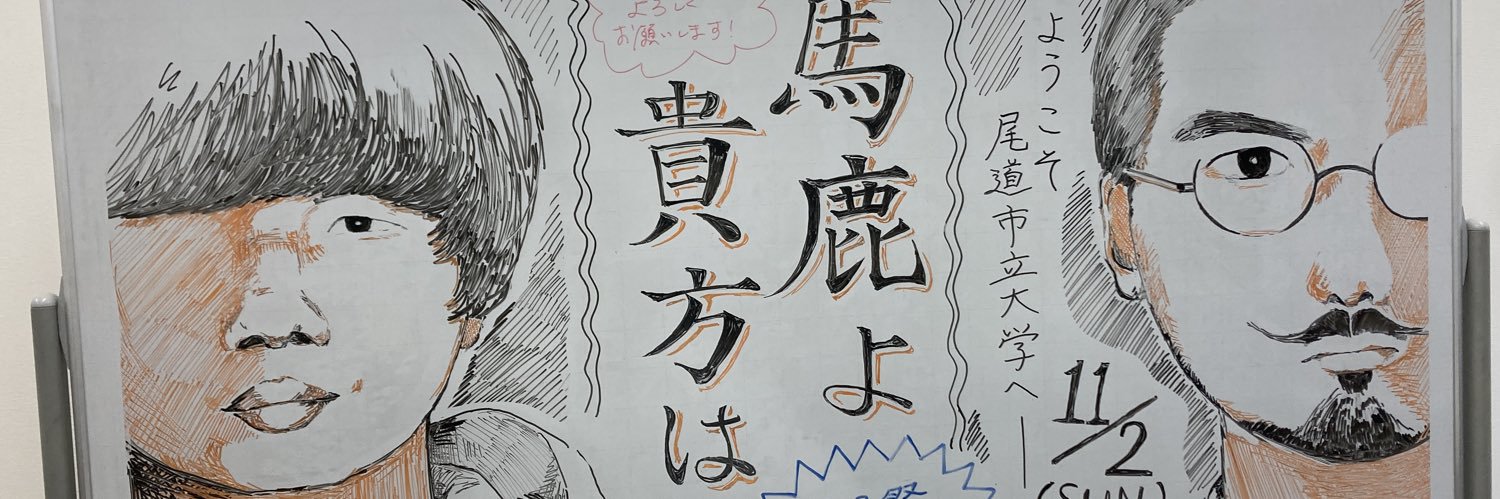 ようこそ
尾道市立大学へ
11/2
(SUN)
馬鹿よ
貴方は
よろしく
お願いします!